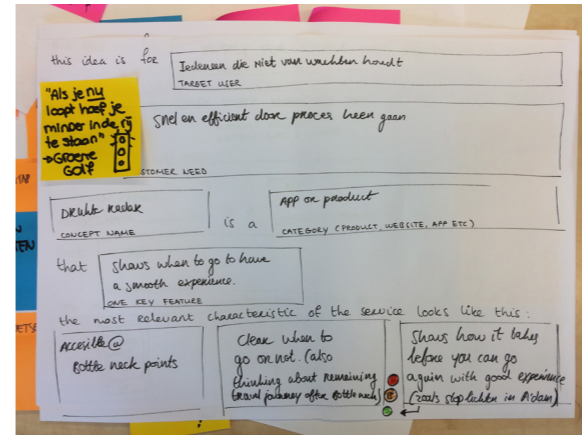 this idea is for
Iedereen die niet van wachten houdt
TARGET USER
"Als je nu
loopt hoef je
minder in de rij
te staan"
→ GROENE
GOLF
Snel en efficient door proces heen gaan
STOMER NEED
Drukte Radar
CONCEPT NAME
is a
App or product
CATEGORY (PRODUCT, WEBSITE, APP ETC)
that
Shows when to go to have
a smooth experience.
ONE KEY FEATURE
the most relevant characteristic of the service looks like this:
Accesible @
Bottle neck points
Clear when to
go or not. (also
thinking about remaining
travel journey after bottleneck)
Shows how it takes
before you can go
again with good experience
(zoals stoplichten in A'dam)